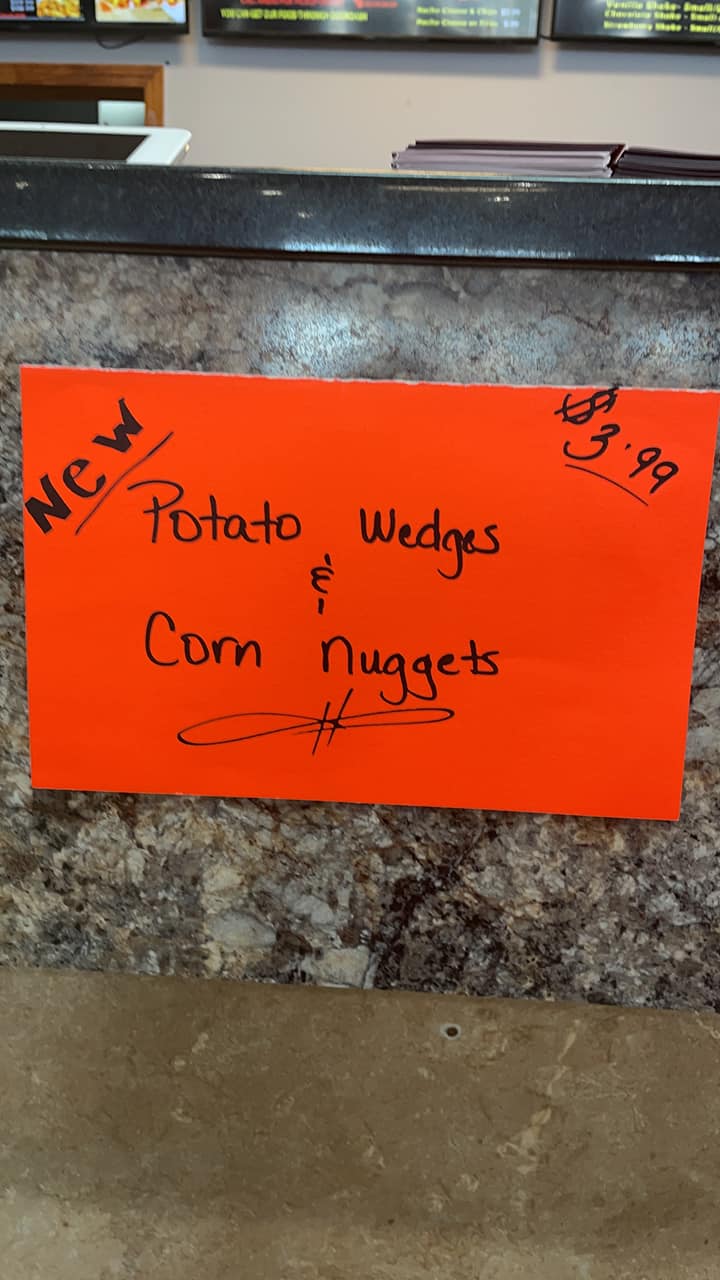 YOU CAN GET OUR FOOD THROUGH DOORDASH
Nacho Cheese & Chips
Vanilla Shake - Small
Chocolate Shake - Small
Strawberry Shake - Small
New
$3.99
Potato Wedges
&
Corn nuggets